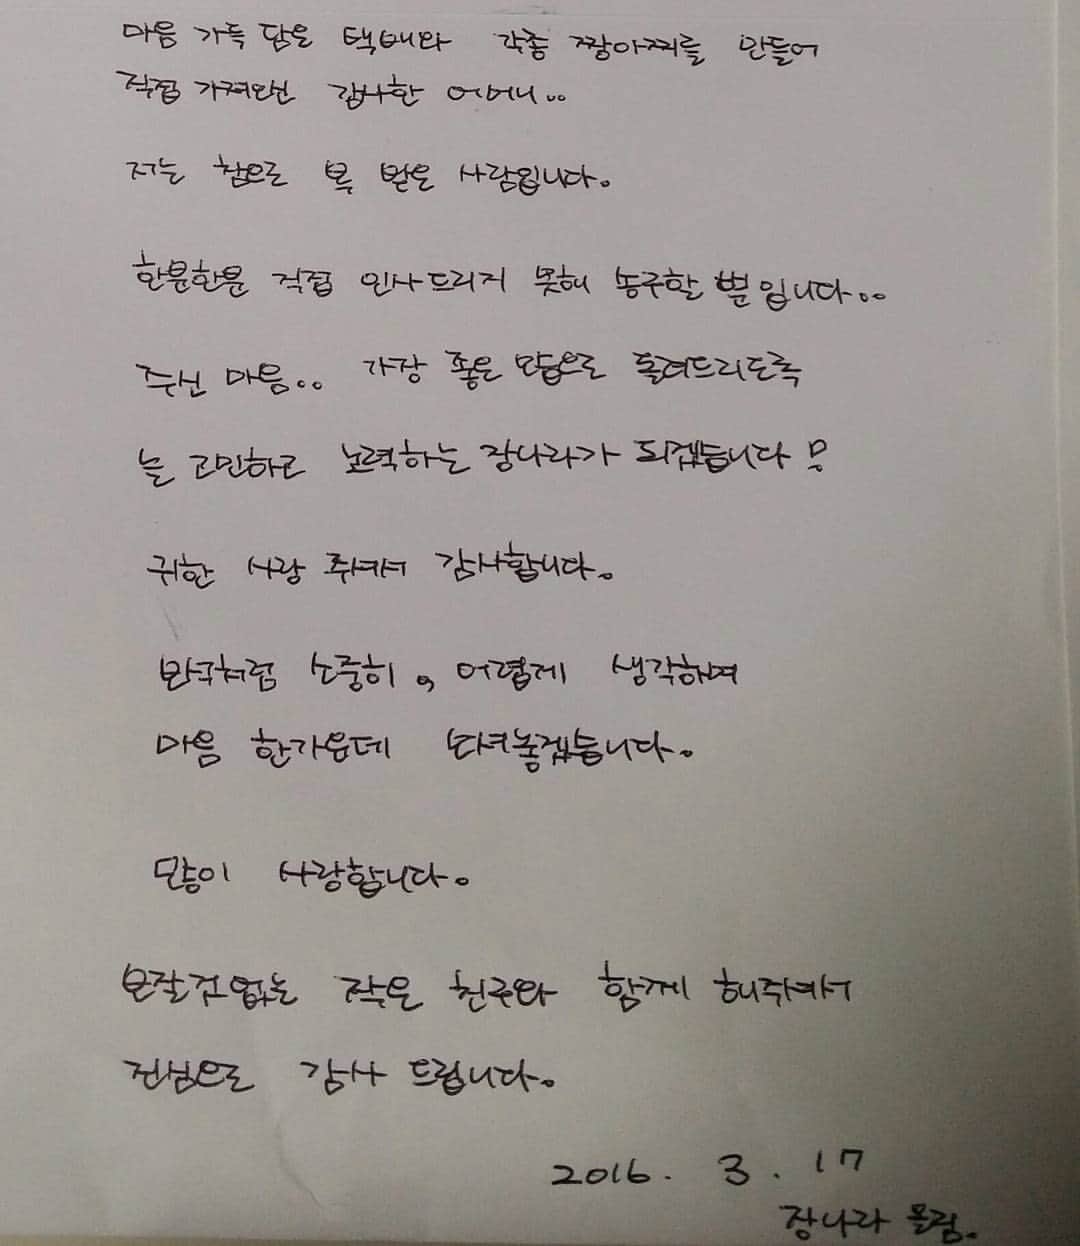 마음 가득 담은 택배와 각종 짱아찌를 만들어
직접 가져와주신 감사한 어머니..
저는 참으로 복 받은 사람입니다.
한분한분 직접 인사드리지 못해 송구할 뿐입니다..
주신 마음.. 가장 좋은 모습으로 돌려드리도록
늘 고민하고 노력하는 장나라가 되겠습니다!
귀한 사랑 주셔서 감사합니다.
처럼 소중히, 어렵게 생각하며
마음 한가운데 놓겠습니다.
많이 사랑합니다.
보잘것없는 작은 친구와 함께 해주셔서
진심으로 감사 드립니다.
2016. 3. 17
장나라 올림.